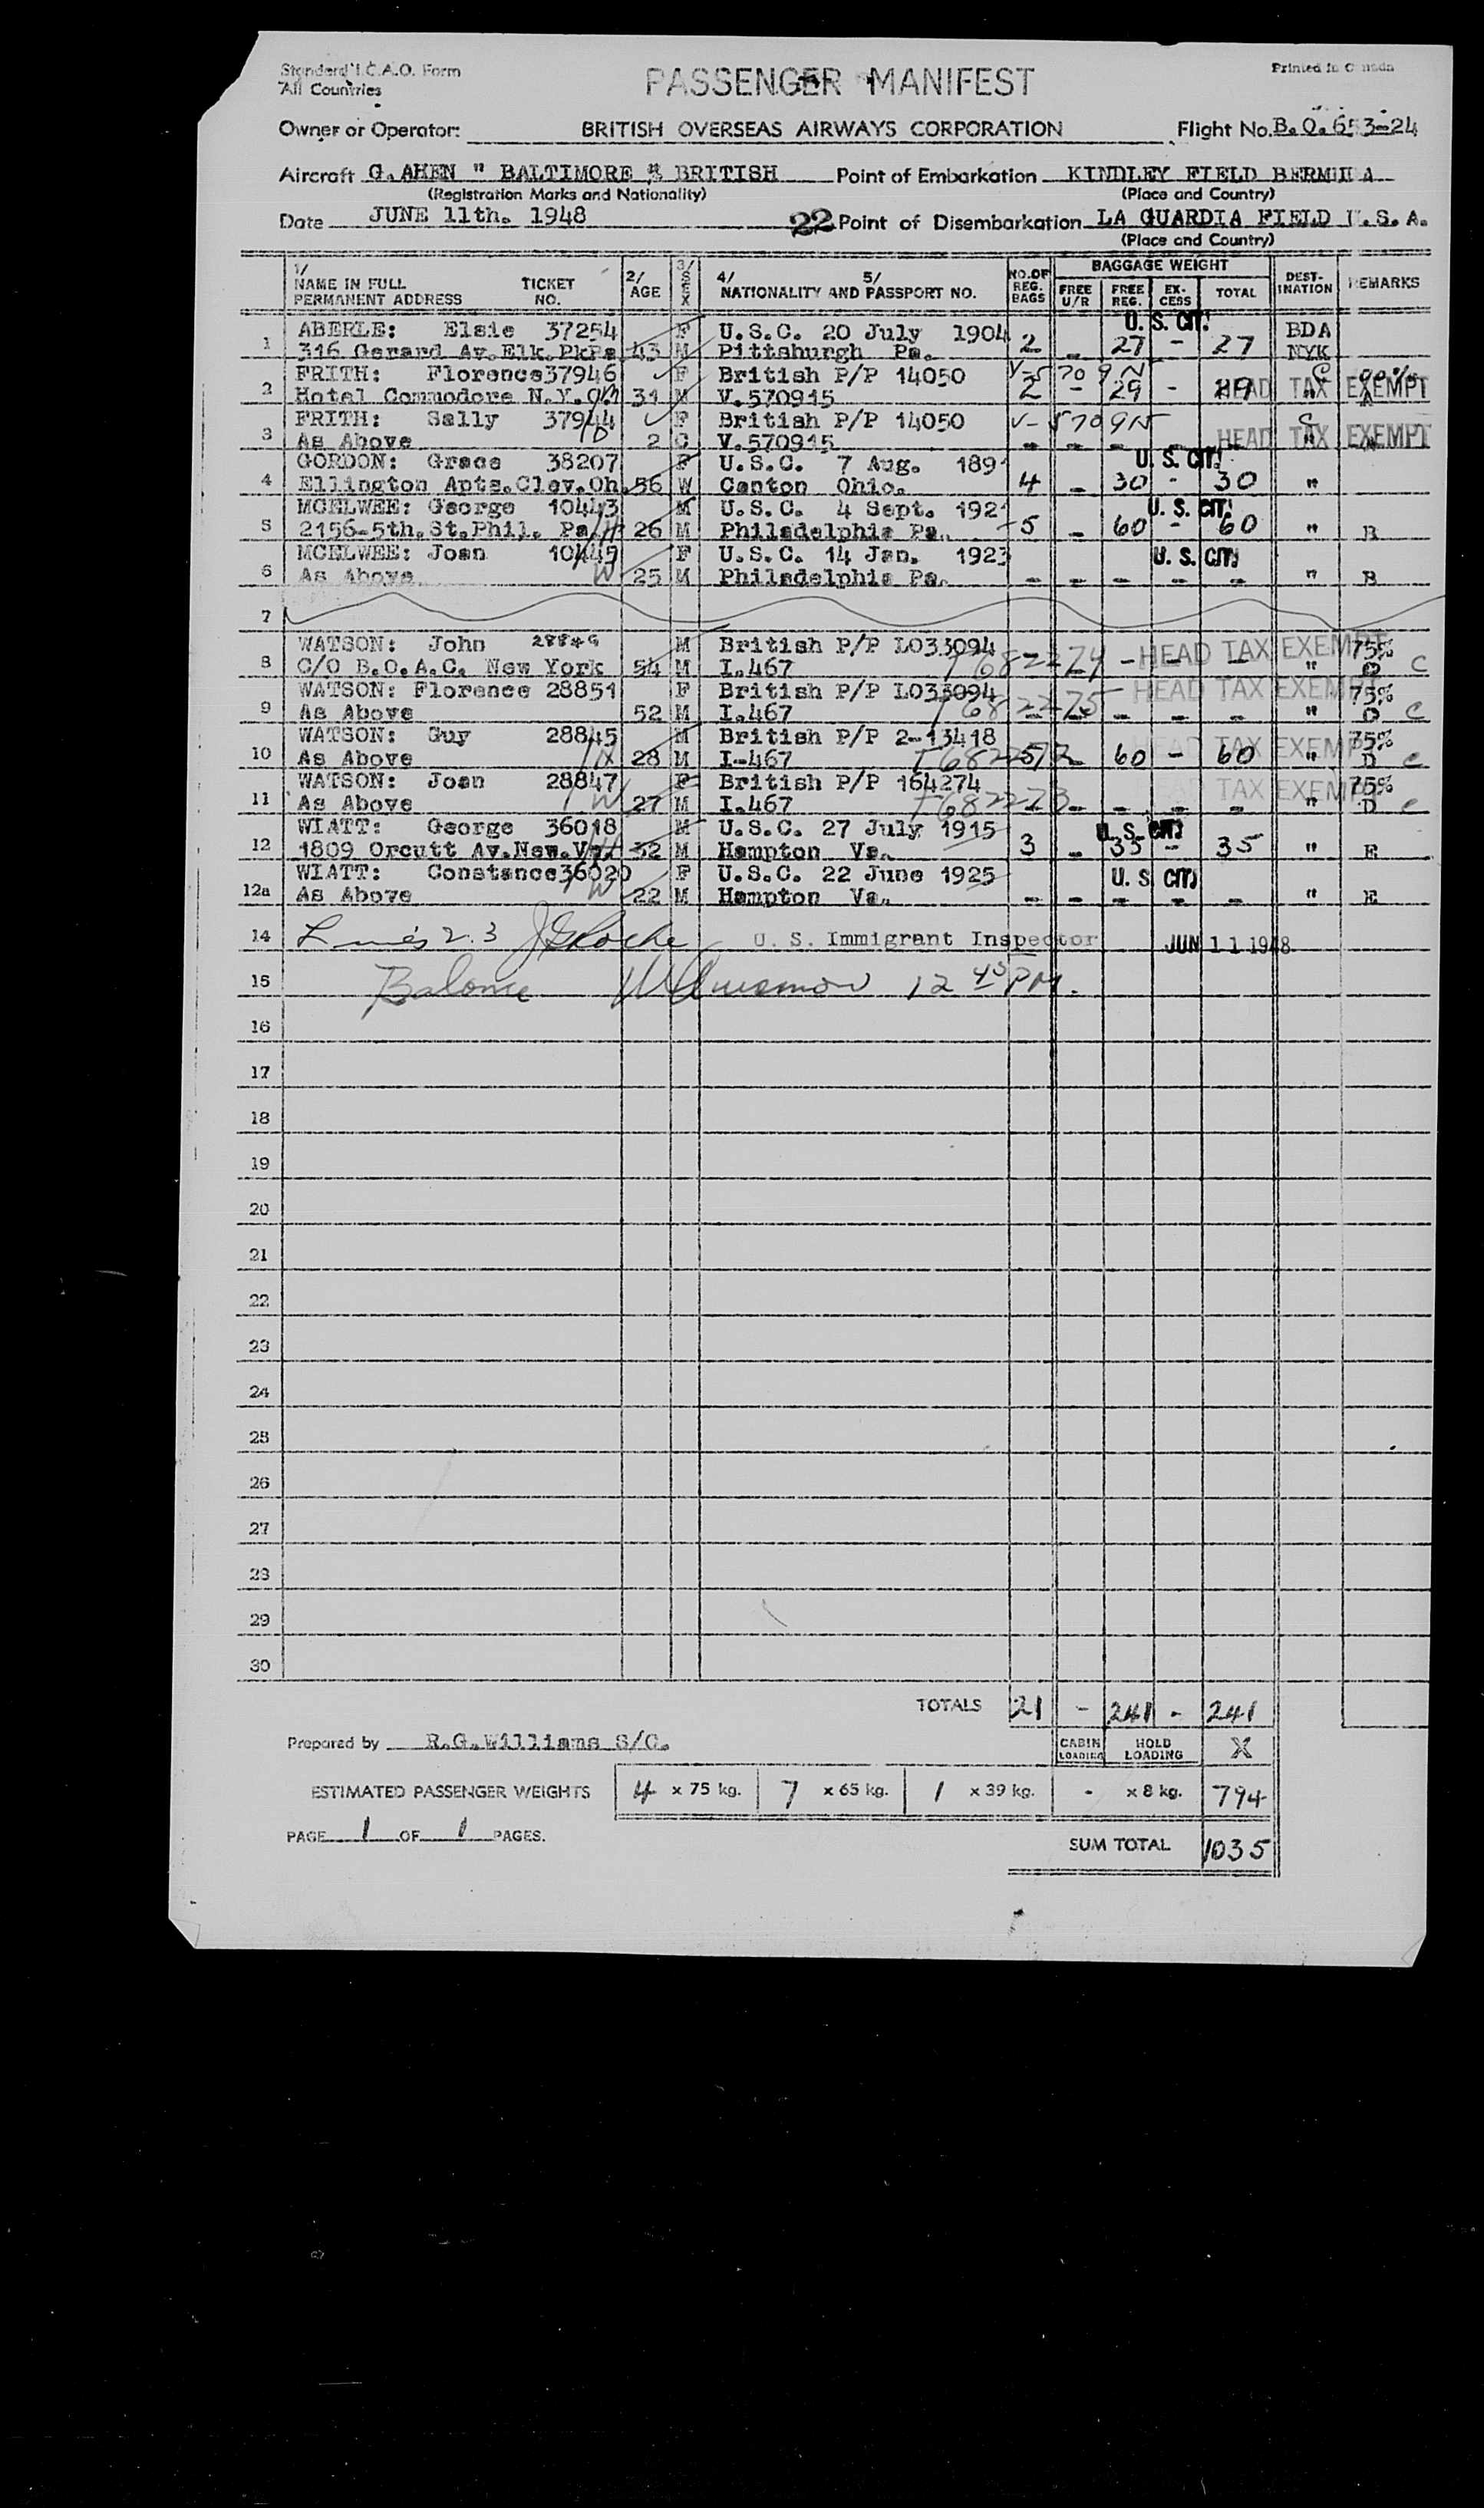 Standard I.C.A.O. Form
All Countries
PASSENGER MANIFEST
Printed in Canada
Owner or Operator: BRITISH OVERSEAS AIRWAYS CORPORATION Flight No. B.O.653-24
Aircraft G.AHEN " BALTIMORE " BRITISH Point of Embarkation KINDLEY FIELD BERMUDA
(Registration Marks and Nationality) (Place and Country)
Date JUNE 11th. 1948 22 Point of Disembarkation LA GUARDIA FIELD U.S.A.
(Place and Country)
1/ NAME IN FULL PERMANENT ADDRESS TICKET NO. 2/ AGE 3/ SEX 4/ 5/ NATIONALITY AND PASSPORT NO. NO. OF REG. BAGS BAGGAGE WEIGHT FREE U/R FREE REG. EX-CESS TOTAL DEST-INATION REMARKS
U. S. CIT.
1 ABERLE: Elsie 37254 F U.S.C. 20 July 1904 BDA
316 Gerard Av.Elk.PkPa. 43 M Pittsburgh Pa. 2 - 27 - 27 NYK
2 FRITH: Florence 37946 F British P/P 14050 V-5709N
Hotel Commodore N.Y. 31 M V.570915 2 - 29 - 29 " HEAD TAX EXEMPT
3 FRITH: Sally 37944 F British P/P 14050 V-5709N
As Above 2 C V.570915 - - - - - " HEAD TAX EXEMPT
4 GORDON: Grace 38207 F U.S.C. 7 Aug. 1891 U. S. CIT.
Ellington Apts.Clev.Oh. 56 W Canton Ohio. 4 - 30 - 30 "
5 MCELWEE: George 10443 M U.S.C. 4 Sept. 1921 U. S. CIT.
2156-5th.St.Phil. Pa 26 M Philadelphia Pa. 5 - 60 - 60 " B
6 MCELWEE: Joan 10445 F U.S.C. 14 Jan. 1923 U. S. CIT.
As Above W 25 M Philadelphia Pa. - - - - - " B
7
8 WATSON: John 28849 M British P/P L033094 HEAD TAX EXEMPT 75%
C/O B.O.A.C. New York 54 M I.467 T682274 - - - " D C
9 WATSON: Florence 28851 F British P/P L033094 HEAD TAX EXEMPT 75%
As Above 52 M I.467 T682275 - - - - - " D C
10 WATSON: Guy 28845 M British P/P 2-13418 HEAD TAX EXEMPT 75%
As Above H 28 M I-467 T682272 5 - 60 - 60 " D C
11 WATSON: Joan 28847 F British P/P 164274 HEAD TAX EXEMPT 75%
As Above W 27 M I.467 T682273 - - - - - " D C
12 WIATT: George 36018 M U.S.C. 27 July 1915 U. S. CIT.
1809 Orcutt Av.New.Va. H 32 M Hampton Va. 3 - 35 - 35 " E
12a WIATT: Constance 36020 F U.S.C. 22 June 1925 U. S. CIT.
As Above W 22 M Hampton Va. - - - - - " E
14 Lines 2.3 U. S. Immigrant Inspector JUN 11 1948
15 Balance 12 45 PM.
16
17
18
19
20
21
22
23
24
25
26
27
28
29
30
TOTALS 21 - 241 - 241
Prepared by R.G.Williams S/C. CABIN LOADING HOLD LOADING X
ESTIMATED PASSENGER WEIGHTS 4 x 75 kg. 7 x 65 kg. 1 x 39 kg. - x 8 kg. 794
PAGE 1 OF 1 PAGES.
SUM TOTAL 1035